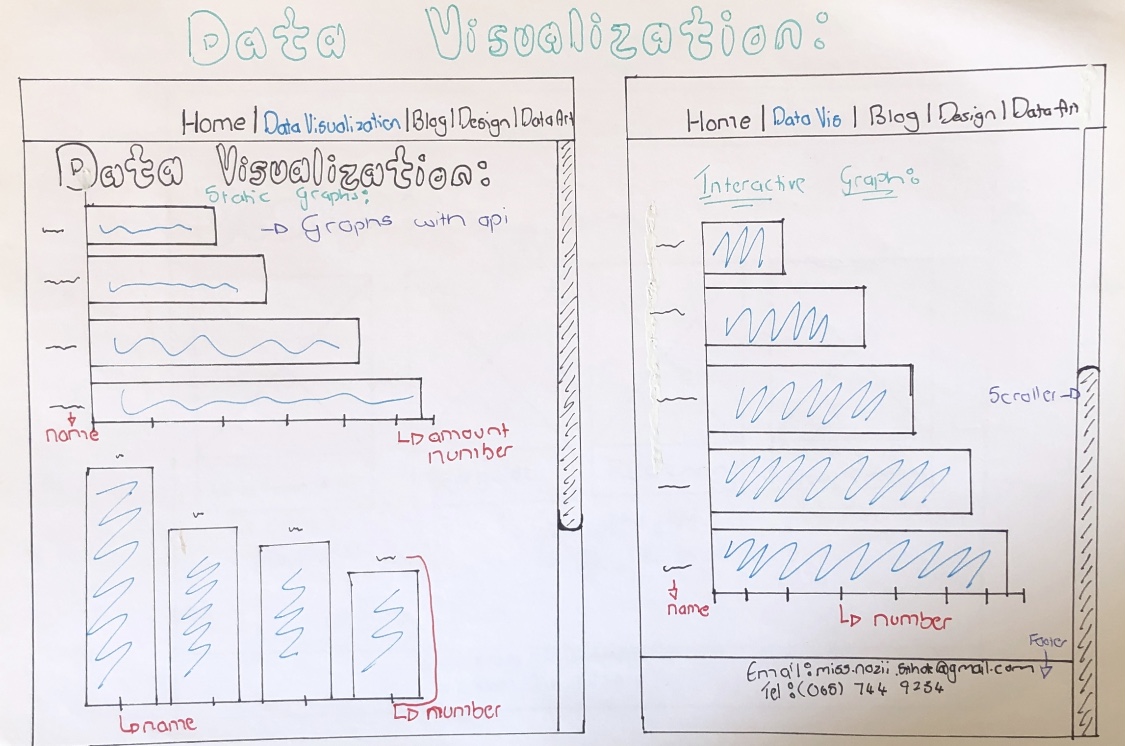 Data Visualization:
Home | Data Visualization | Blog | Design | Data Art
Data Visualization:
Static Graphs:
→ Graphs with api
name
→ amount
number
→ name
→ number
Home | Data Vis | Blog | Design | Data Art
Interactive Graph:
Scroller →
name
→ number
Footer
Email: miss.nozii
@gmail.com
Tel : (065) 744 9234